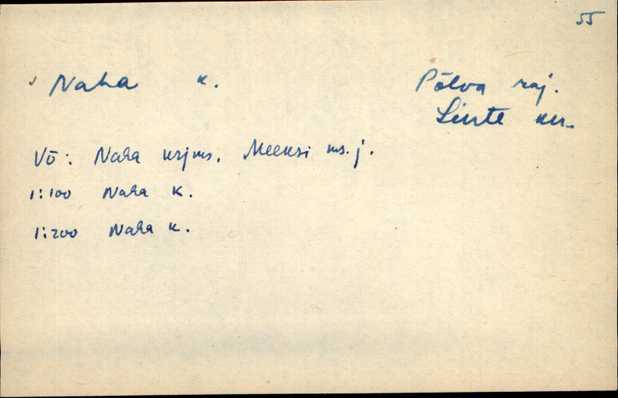 55
Naha k. Põlva raj.
Linte kn.
Võ: Naha krjms. Meeksi ms.j.
1:100 Naha k.
1:200 Naha k.